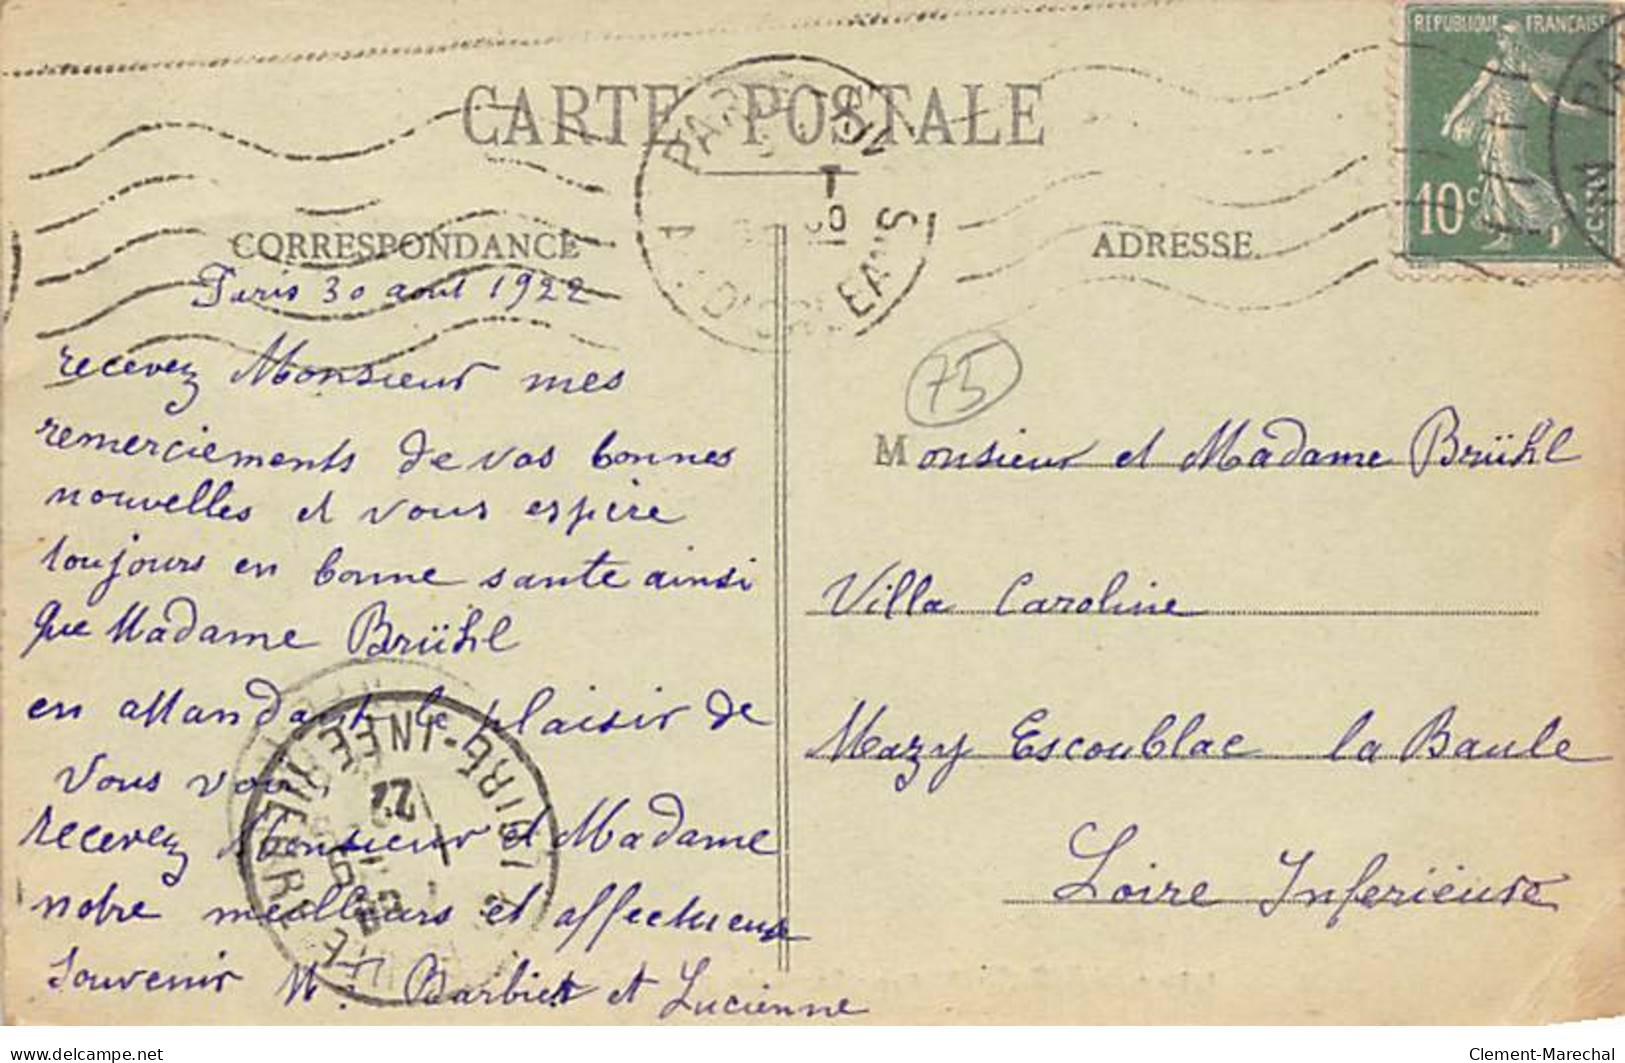 CARTE POSTALE
REPUBLIQUE FRANÇAISE
10c
CORRESPONDANCE
ADRESSE
Paris 30 aout 1922
recevez Monsieur mes
remerciements de vos bonnes
nouvelles et vous espere
toujours en bonne sante ainsi
que Madame Brühl
en attandant le plaisir de
vous voir,
recevez Monsieur et Madame
notre meilleurs et affectueux
souvenir
Barbier et Lucienne
75
Monsieur et Madame Brühl
Villa Caroline
Mazy Escoublac la Baule
Loire Inferieure
delcampe.net
Clement-Marechal